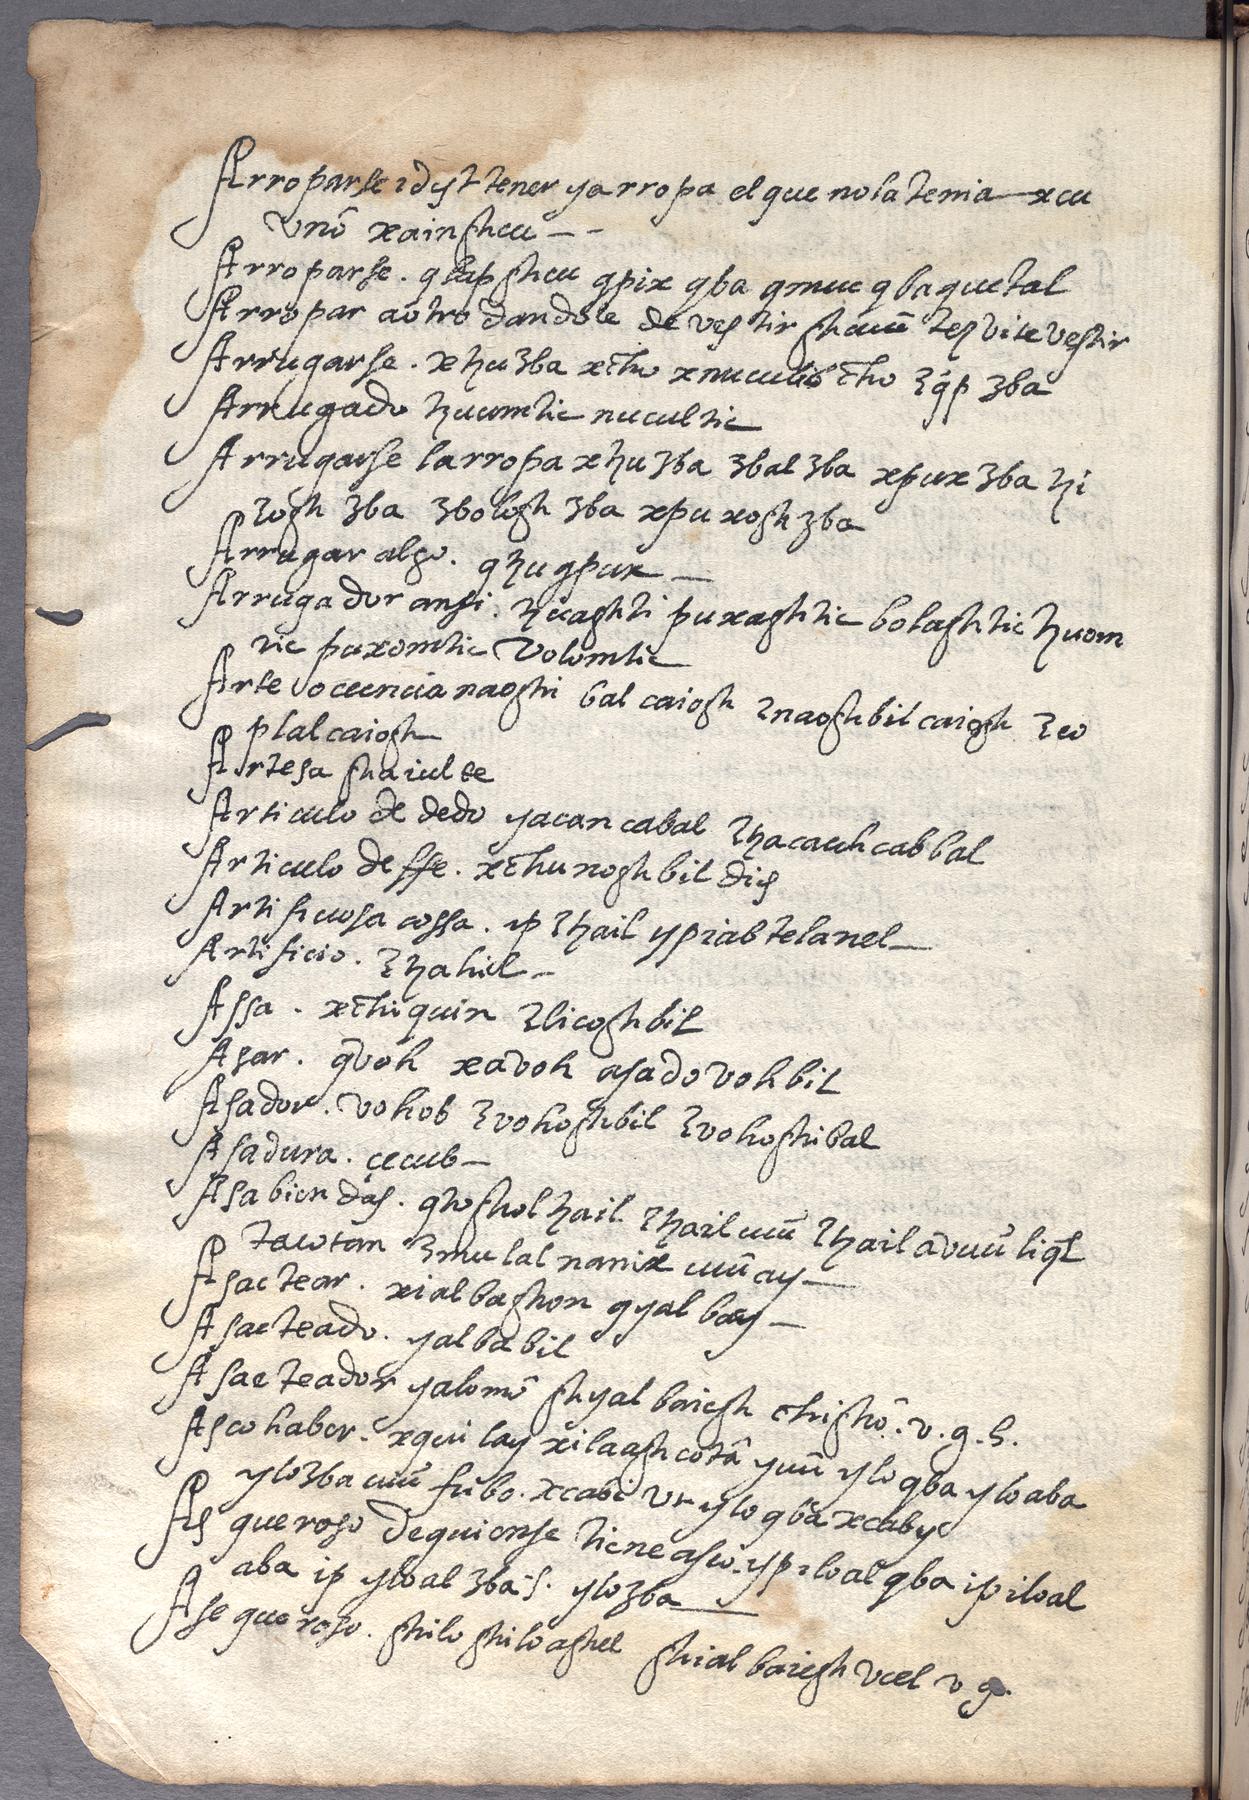 Arroparse idyt tener ya rropa el que no la tenia xcu
vnō xainghcu
Arroparse. qlap ghcu qpix qba qmuc qbaquetal
Arropar aotro dandole de vestir
Arrugarse. xhuʒba xchu ʒba
Arrugado huomtic nucultic
Arrugarse la rropa xhuʒba ʒbalʒba xpuxʒba hi
ʒogh ʒba ʒbologh ʒba xpuxogh ʒba
Arrugar algo. qhu qpux
Arrugador ansi. huaghti puxaghtic bolaghtic huom
tic puxomtic volomtic
Arte o ciencia naoghi bal caiogh ʒnaoghbil caiogh ʒeo
plal caiogh
Artesa ghaiulte
Articulo de dedo yacan cabal ʒhacauh cabbal
Articulo de ffe. xchunoghbil dios
Artificiosa cossa. ip ʒhail ypiabtelanel
Artificio. ʒhahil
Assa. xchiquin ʒlicoghbil
Asar. qvoh xavoh asado vohbil
Asador. vohob ʒvohoghbil ʒvohoghibal
Asadura. çecub
Asabiendas. qhoghol hail ʒhail uuū ʒhail avuū
tacotan ʒmulal nanix uuū cuy
Asaetear. xialbaghon qyalbay
Asaeteado. yalbabil
Asaeteador yalomō ghyal baiegh chighō. v.g.h.
Asco haber. xqui lay xilaagh cotā yuū ylo qba yloaba
yloʒba uuū xcabi ylo qba xcaby
Asqueroso dequionse tiene asco. yp iloal qba ip iloal
aba ip yloal ʒba s. yloʒba
Asequeroso. ghilo ghiloaghel ghial baiegh vcel v g.